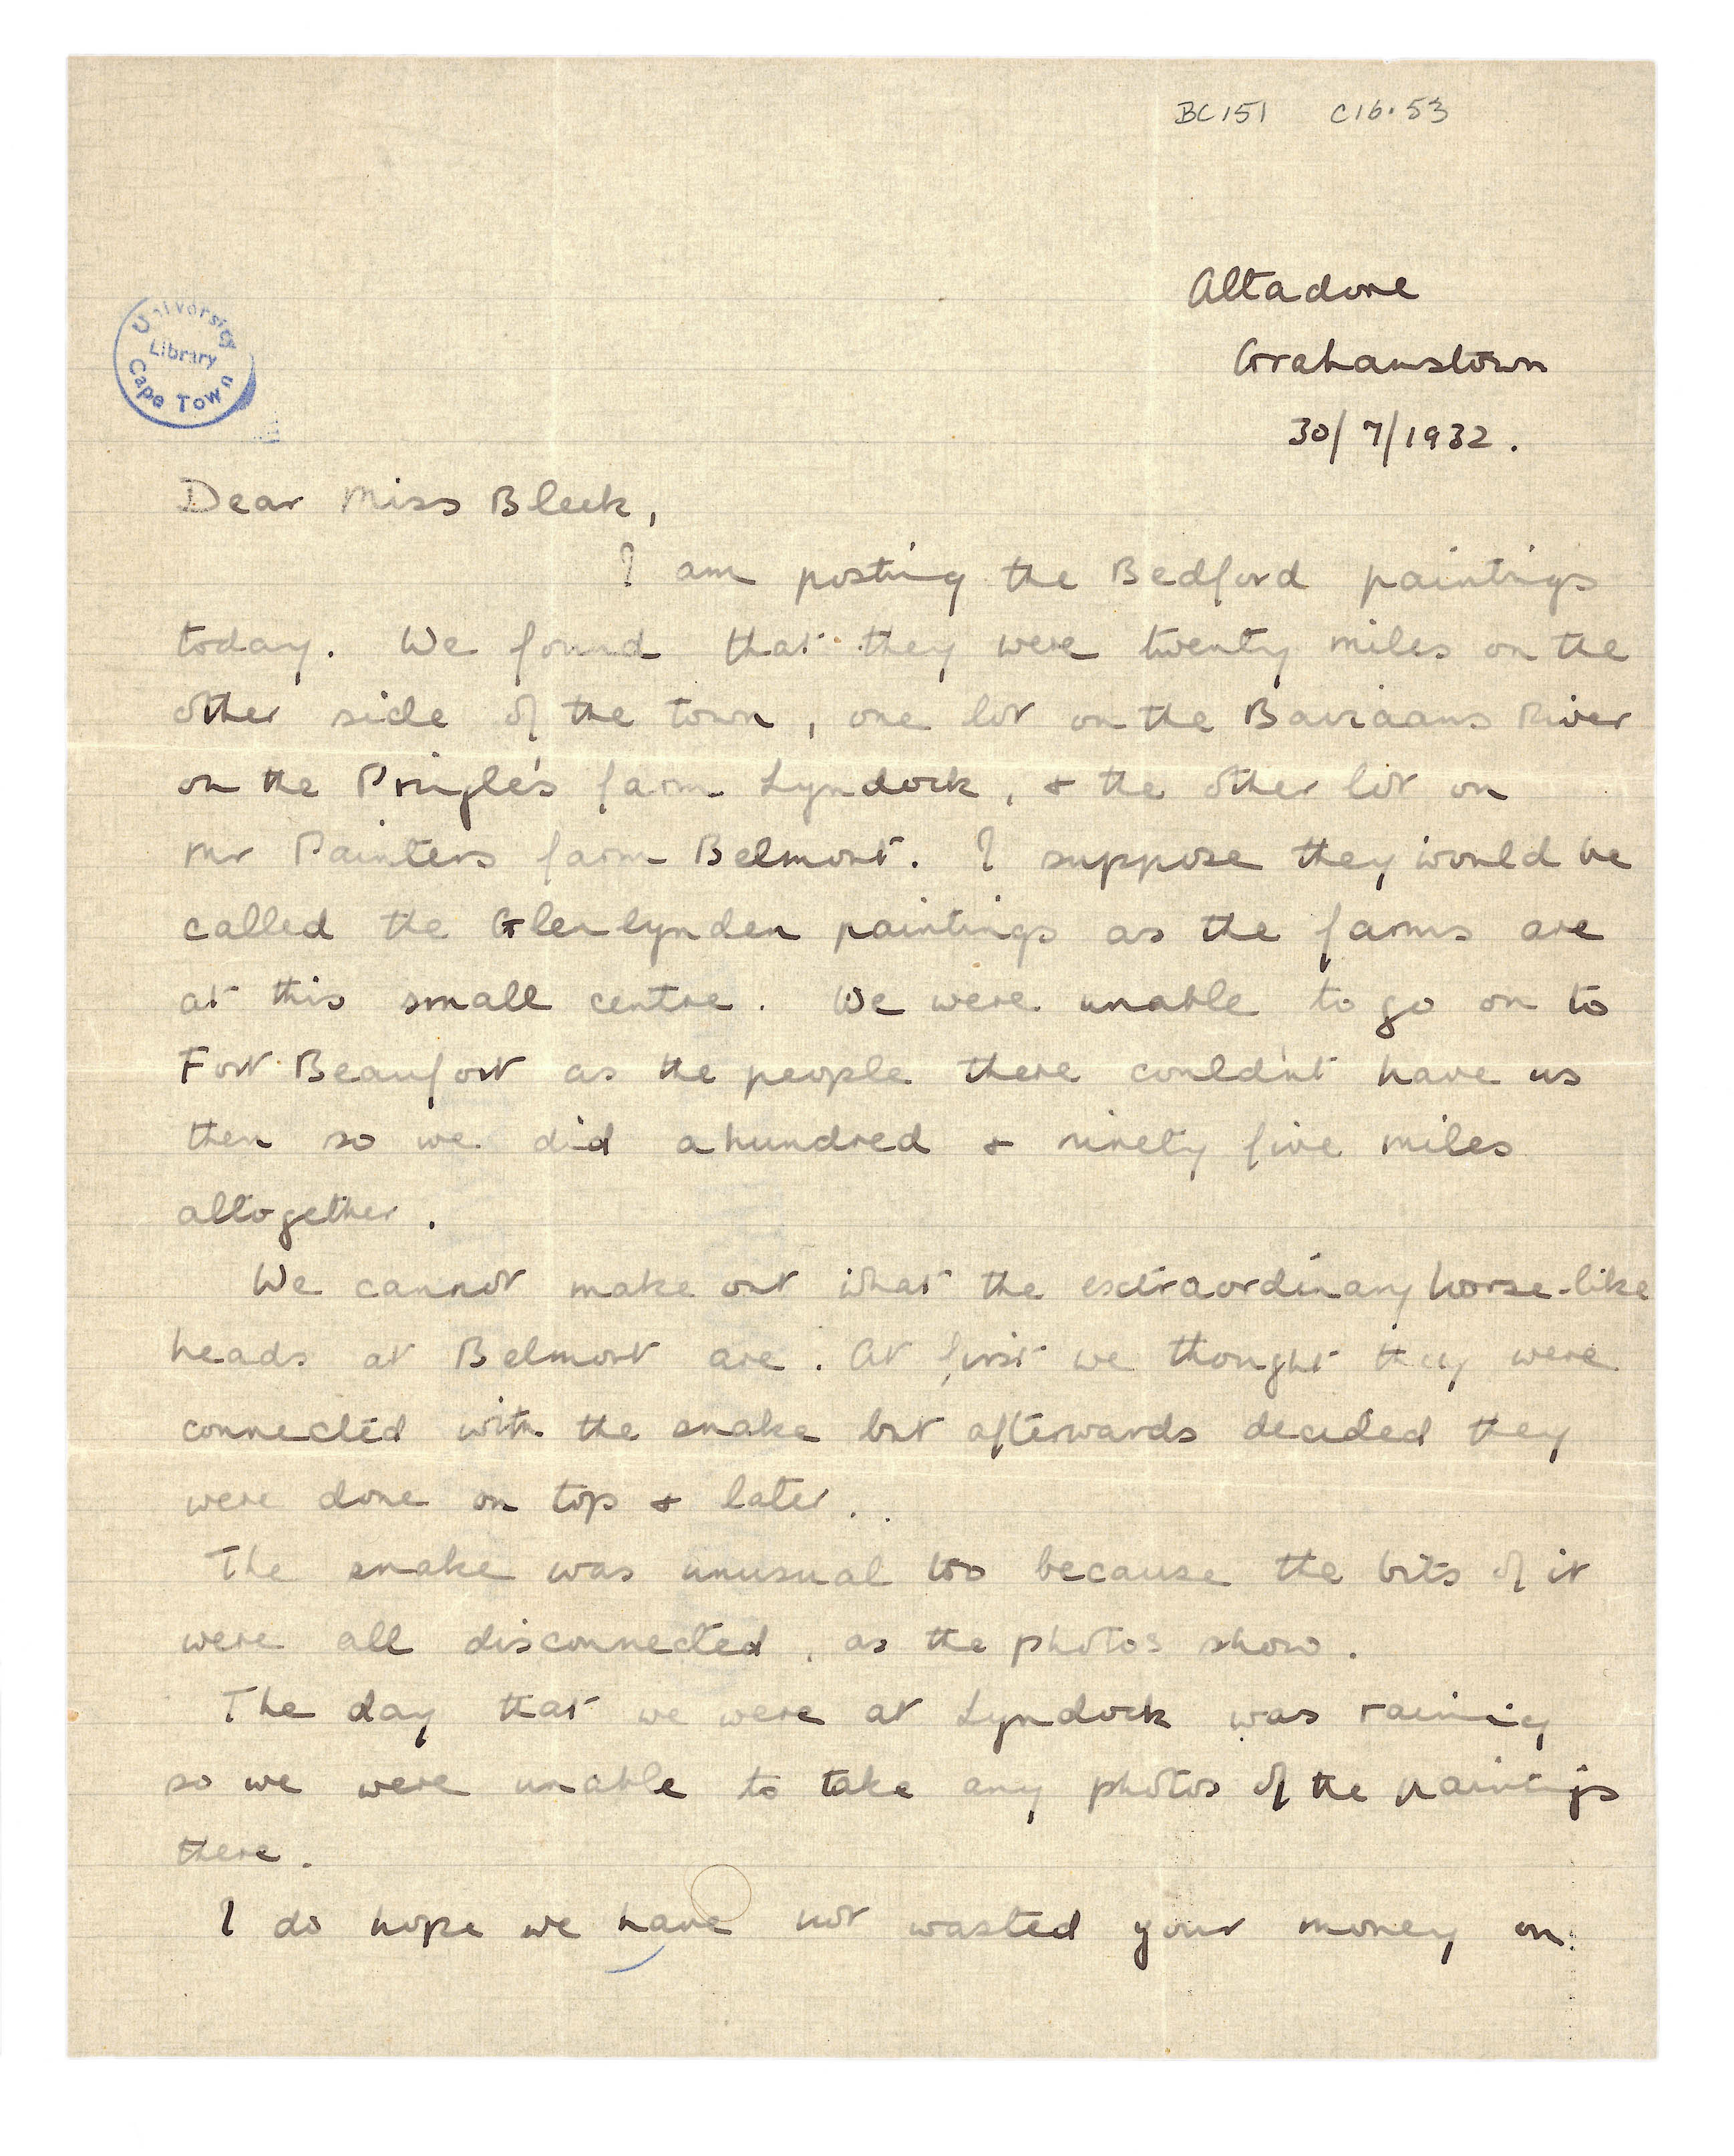 BC151 C16.53
Altadore
Grahamstown
30/7/1932.
University
Library
Cape Town
Dear Miss Bleek,
I am posting the Bedford paintings
today. We found that they were twenty miles on the
other side of the town, one lot on the Baviaans River
on the Pringle's farm Lyndock, & the other lot on
Mr Painters farm Belmont. I suppose they would be
called the Glenlynden paintings as the farms are
at this small centre. We were unable to go on to
Fort Beaufort as the people there couldn't have us
then so we did a hundred & ninety five miles
altogether.
We cannot make out what the extraordinary horse-like
heads at Belmont are. At first we thought they were
connected with the snake but afterwards decided they
were done on top & later.
The snake was unusual too because the bits of it
were all disconnected, as the photos show.
The day that we were at Lyndock was rainy
so we were unable to take any photos of the paintings
there.
I do hope we have not wasted your money on